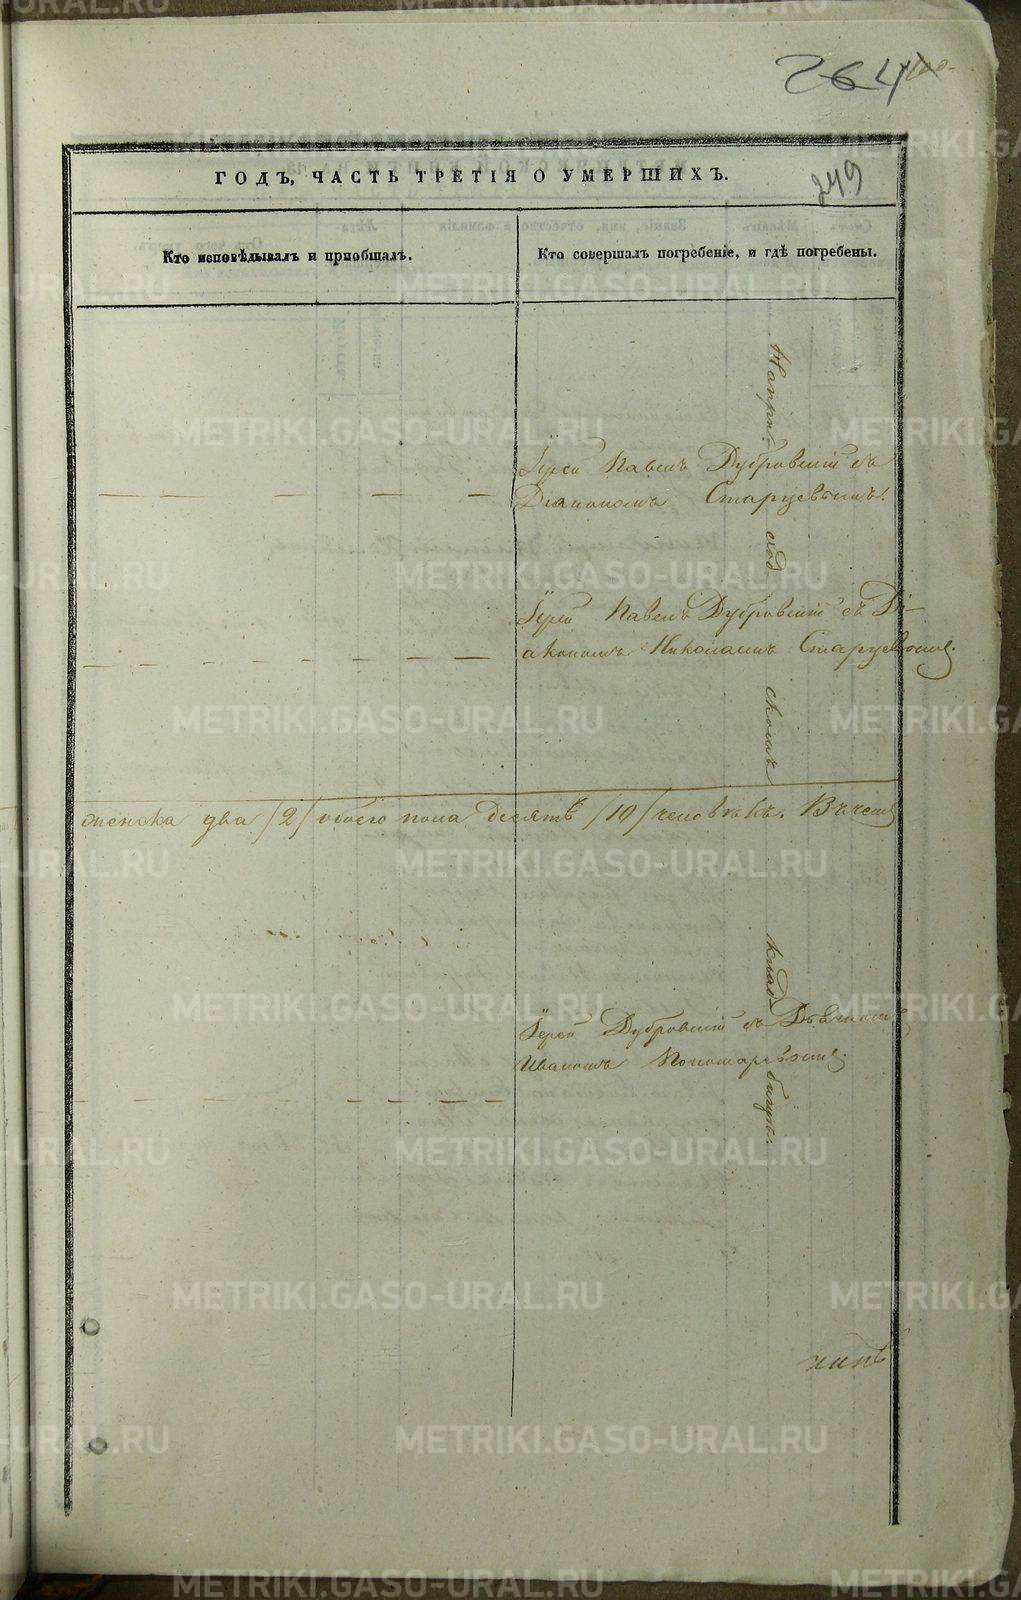 264
249
ГОДЪ, ЧАСТЬ ТРЕТІЯ О УМЕРШИХЪ.
Кто исповѣдывалъ и пріобщалъ.
Кто совершалъ погребеніе, и гдѣ погребены.
Іерей Павелъ Дубровскій съ
Діакономъ Старцевымъ.
Іерей Павелъ Дубровскій съ Ді-
акономъ Николаемъ Старцевымъ.
женска два /2/ обоего пола десять /10/ человѣкъ. Въ
Іерей Дубровскій съ
Иваномъ Пономаревымъ.
На
скомъ
клад
бищѣ.
METRIKI.GASO-URAL.RU